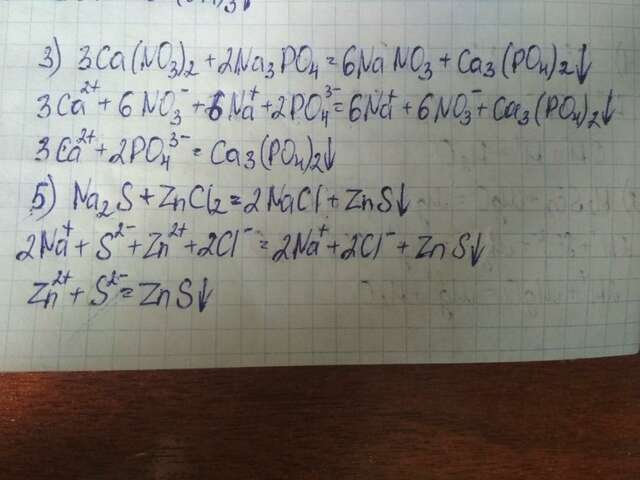 3) 3Ca(NO₃)₂ + 2Na₃PO₄ = 6NaNO₃ + Ca₃(PO₄)₂↓
3Ca²⁺ + 6NO₃⁻ + 6Na⁺ + 2PO₄³⁻ = 6Na⁺ + 6NO₃⁻ + Ca₃(PO₄)₂↓
3Ca²⁺ + 2PO₄³⁻ = Ca₃(PO₄)₂↓
5) Na₂S + ZnCl₂ = 2NaCl + ZnS↓
2Na⁺ + S²⁻ + Zn²⁺ + 2Cl⁻ = 2Na⁺ + 2Cl⁻ + ZnS↓
Zn²⁺ + S²⁻ = ZnS↓